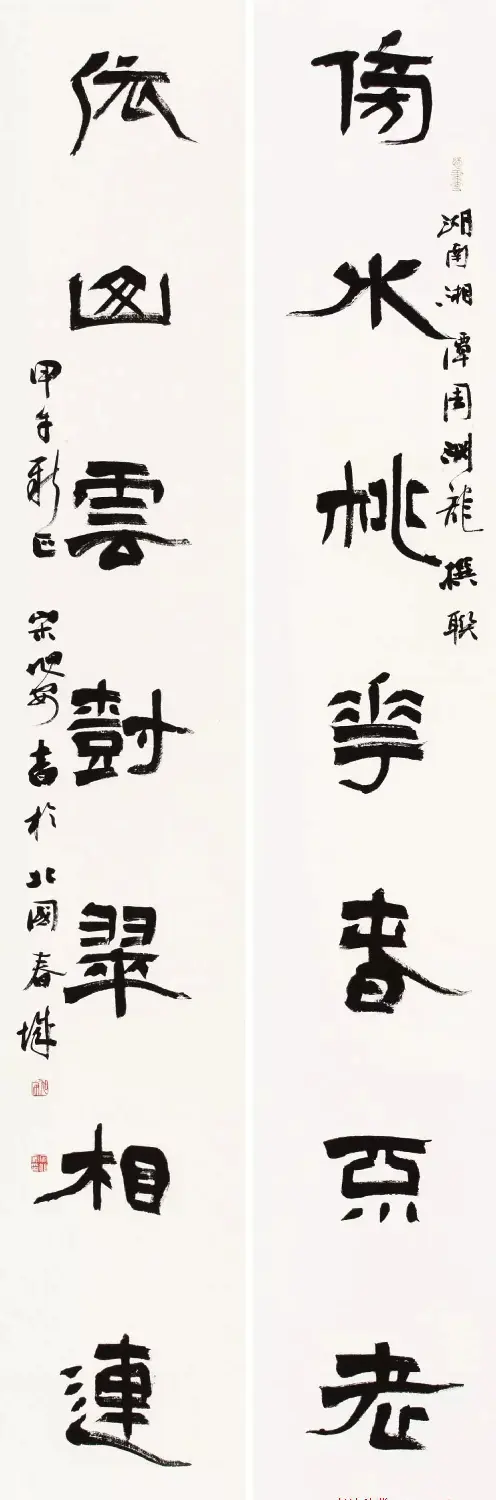 傍水桃華春老
湖南湘潭周渊龍撰聯
依山雲尌翠相連
甲午新正 宋旭安書於北國春城